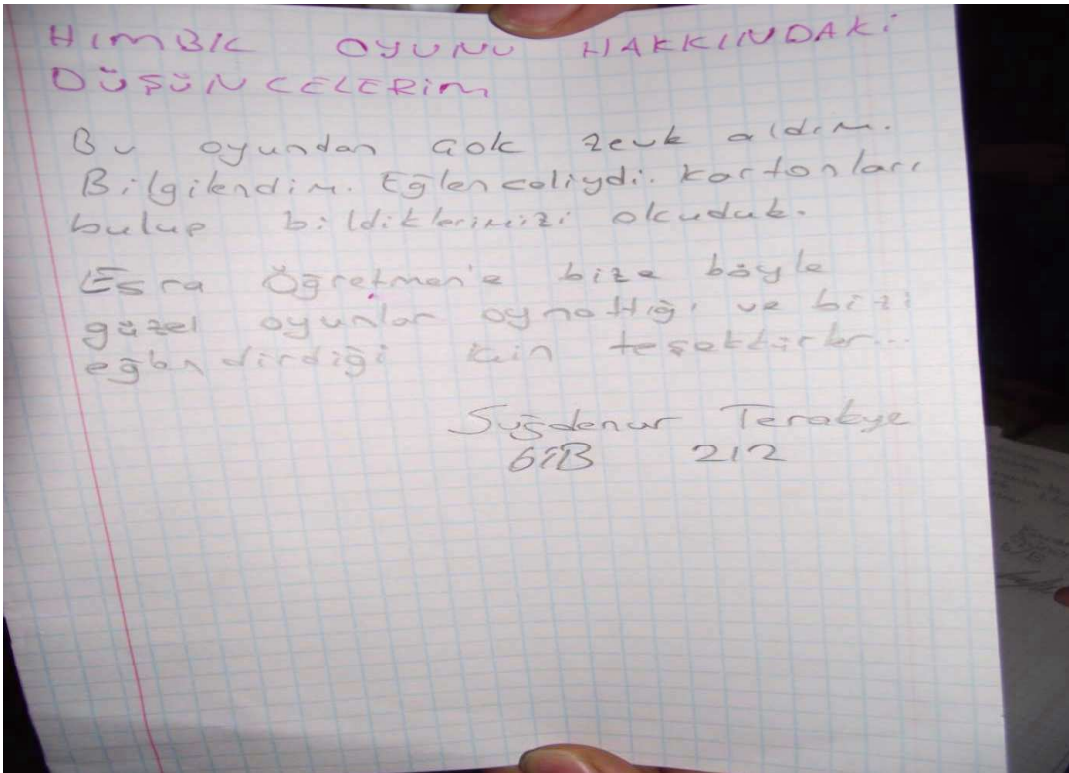 HIMBIL OYUNU HAKKINDAKİ
DÜŞÜNCELERİM
Bu oyundan çok zevk aldım.
Bilgilendim. Eğlenceliydi. Kartonları
bulup bildiklerimizi okuduk.
Esra Öğretmen'e bize böyle
güzel oyunlar oynattığı ve bizi
eğlendirdiği için teşekkürler...
Terakye
6/B 212